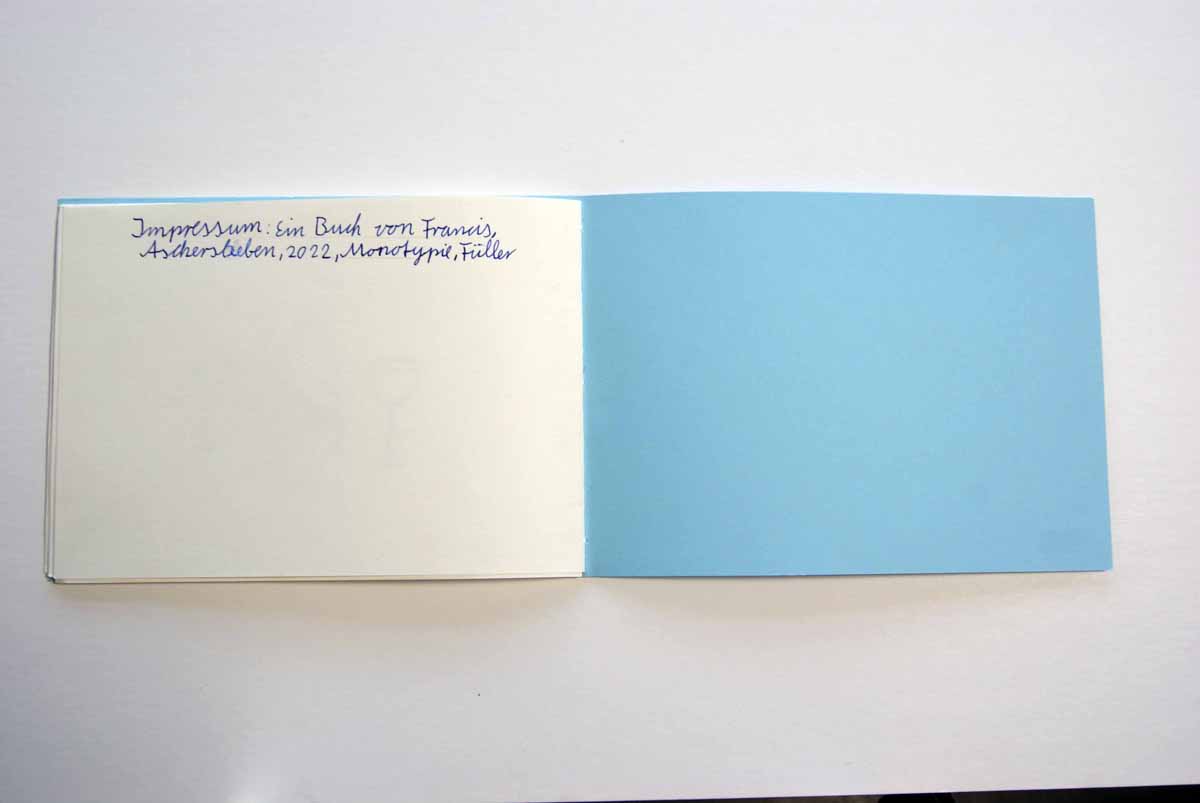 Impressum: Ein Buch von Francis,
Aschersleben, 2022, Monotypie, Füller